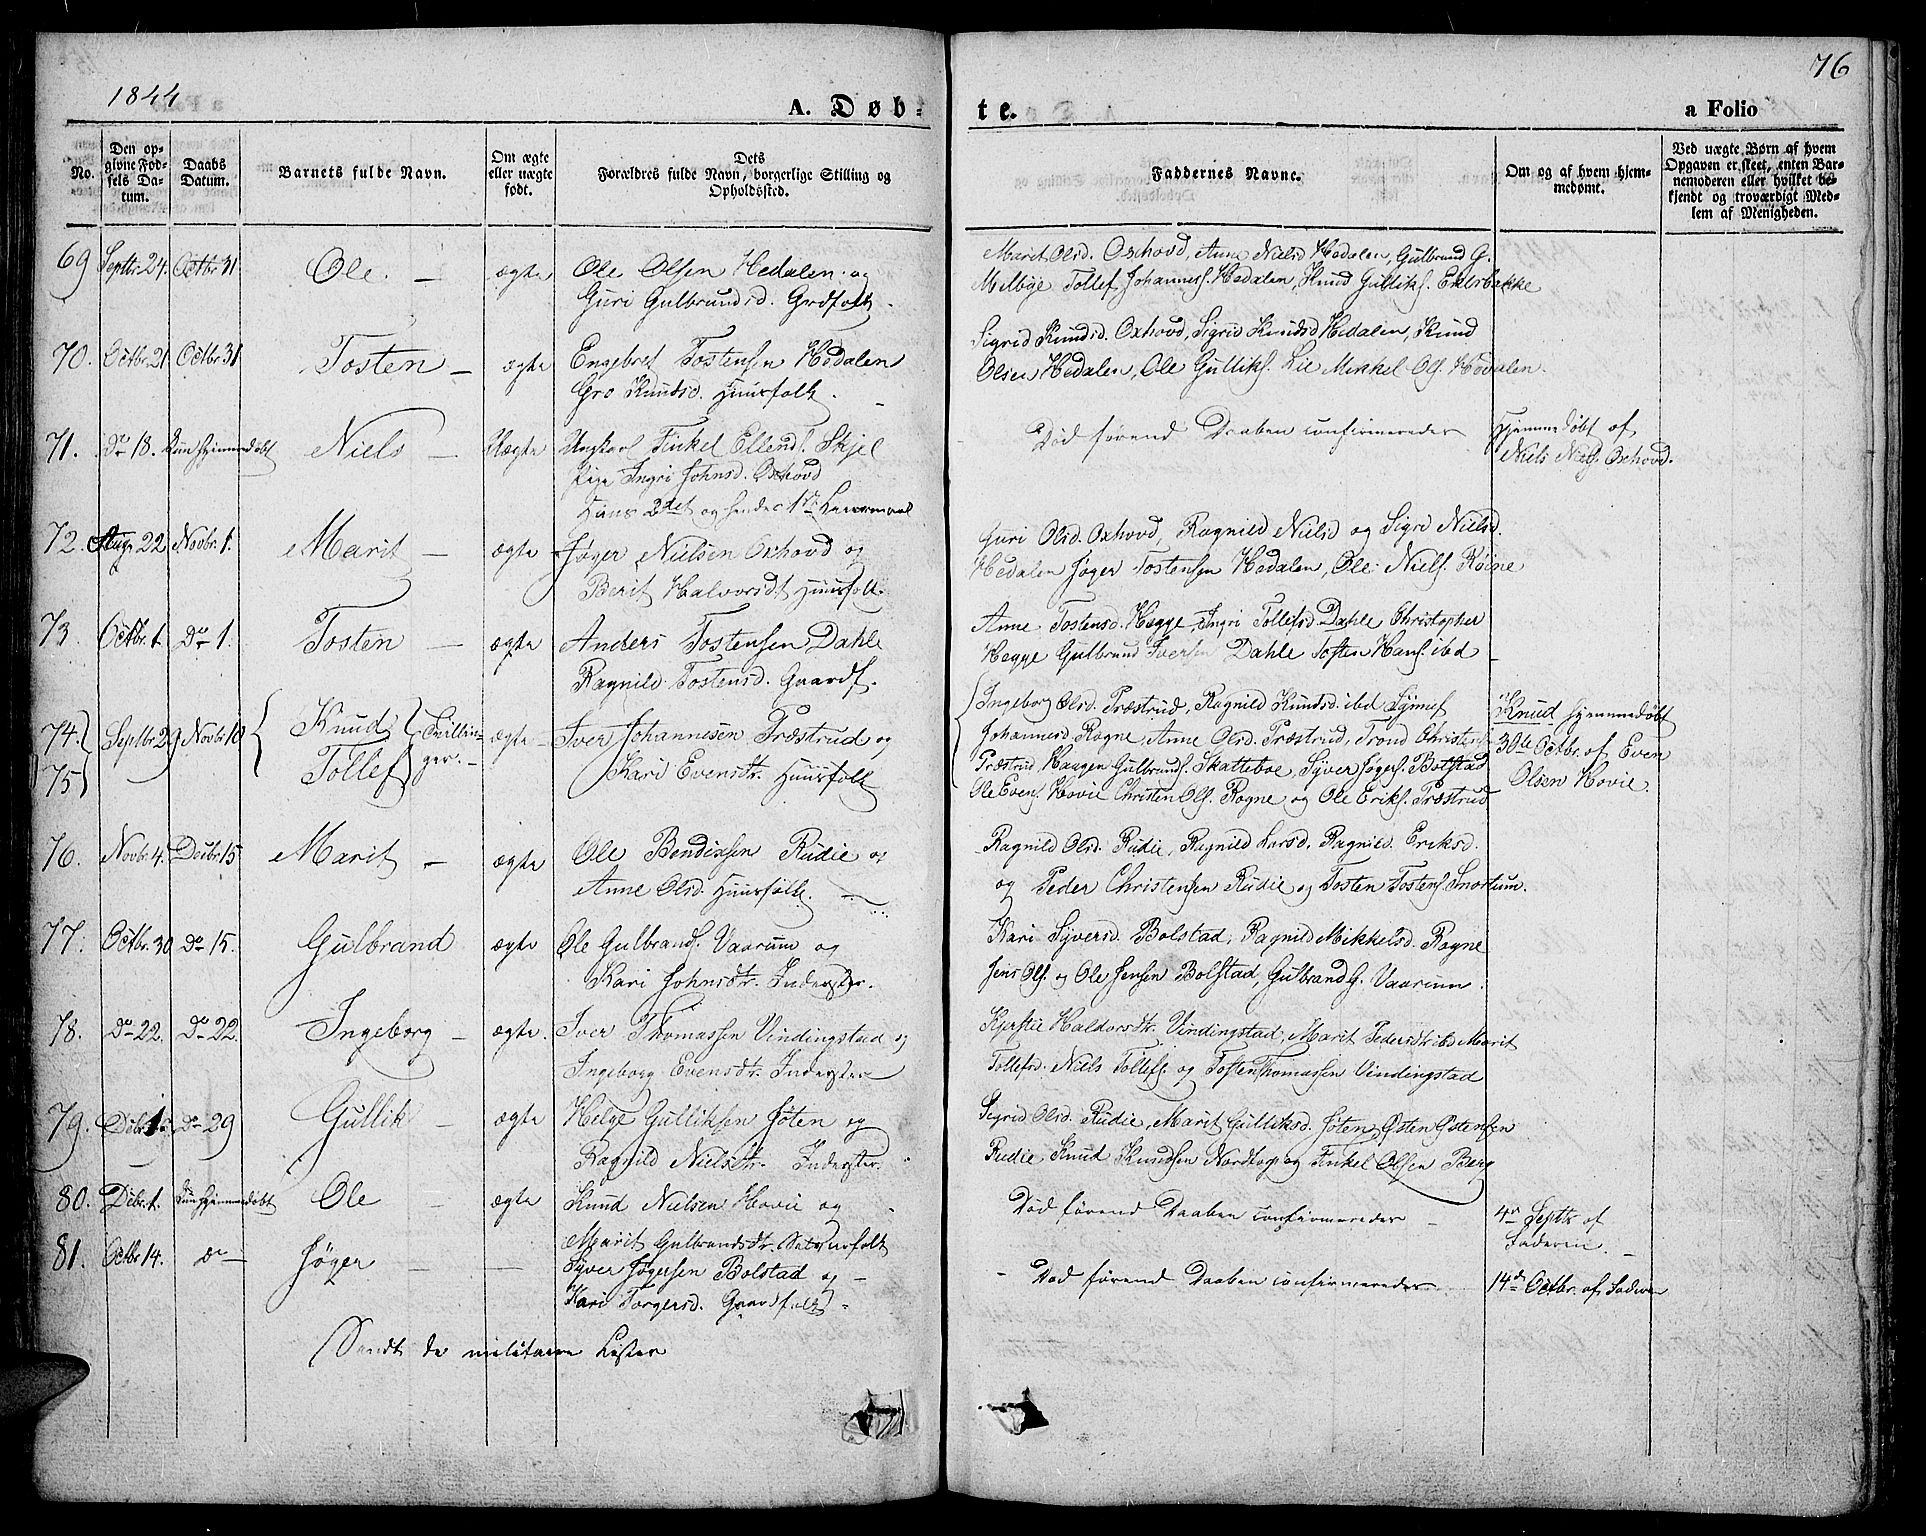 1844
76
A. Døb-
te.
a Folio
No.
Den op-
givne Fød-
sels Da-
tum.
Daabs
Datum.
Barnets fulde Navn.
Om ægte
eller uægte
født.
Dets
Forældres fulde Navn, borgerlige Stilling og
Opholdssted.
Faddernes Navne.
Om og af hvem hjem-
medømt.
Ved uægte Børn af hvem
Opgaven er skeet, enten Bar-
nemoderen eller hvilket be-
kjendt og troværdigt Med-
lem af Menigheden.
69 Septbr. 24. Octbr. 31 Ole. — ægte Ole Olsen Hedalen og
Guri Gulbrandsd. Grdfolk.
Marit Olsd. Oxhovd, Anne Nielsd Hedalen, Gulbrand G.
Melbye Tollef Johannesf. Hedalen, Knud Gulliksf.
70. Octbr. 21 Octbr. 31 Tosten — ægte Engebret Tostensen Hedalen
Gro Knudsd. Huusfolk.
Sigrid Knudsd. Oxhovd, Sigrid Knudsd Hedalen, Knud
Olsen Hedalen, Ole Gulliksf. Lie Mikkel Olsf. Hedalen.
71. Do 18. Kun hjemmedøbt Niels — Uægte Ungkarl Finkel Ellendf. Skjel
Pige Ingri Johnsd. Oxhovd
Hans 2det og hendes 1ste Leiermaal
Død førend Daaben confirmeredes
Hjemmedøbt af
Niels Nielsf. Oxhovd.
72. Aug. 22 Novbr. 1. Marit — ægte Jøger Nielsen Oxhovd og
Berit Halvorsdt. Huusfolk.
Guri Olsd. Oxhovd, Ragnild Nielsd og Sigri Nielsd.
Hedalen Jøger Tostensen Hedalen, Ole Nielsf. Røine
73. Octbr. 1. Do 1 Tosten — ægte Anders Tostensen Dahle
Ragnild Tostensd. Gaardf.
Anne Tostensd. Hegge, Ingri Tollefsd Dahle Christopher
Hegge Gulbrand Iversen Dahle Tosten Hansf. ibid
74. 75 Septbr. 29 Novbr. 10 Knud Tollef Tvillin-
ger. — ægte — Iver Johannesen Præstrud og
Kari Evensdtr. Huusfolk
Ingeborg Olsd. Præstrud, Ragnild Knudsd. ibid
Johannesd Rogne, Anne Olsd. Præstrud, Trond Christensf
Præstrud Haagen Gulbrandsf. Skatteboe, Syver Jøgersf. Bolstad
Ole Evensf. Hovie Christen Olsf. Rogne og Ole Eriksf. Præstrud
Knud hjemmedøbt
30te Octbr. af Even
Olsen Hovie.
76. Novbr. 4. Decbr. 15 Marit — ægte Ole Bendixsen Rudie og
Anne Olsd. Huusfolk.
Ragnild Olsd. Rudie, Ragnild Larsd. Ragnild Eriksd.
og Peder Christensen Rudie og Tosten Tostensf.
77. Octbr. 30 Do 15. Gulbrand ægte Ole Gulbrandsf. Vaarum og
Kari Johnsdtr. Inderster.
Kari Syversd. Bolstad, Ragnild Mikkelsd. Rogne
Jens Olsf. og Ole Jensen Bolstad, Gulbrand G. Vaarum.
78. Do 22. Do 22. Ingeborg — ægte. Iver Thomassen Vindingstad og
Ingeborg Evensdtr. Inderster
Kjerstie Haldorsdtr. Vindingstad, Marit Pedersdtr ibid Marit
Tollefsd. Niels Tollefsf. og Tosten Thomassen Vindingstad
79. Decbr. 1 Do 29 Gullik — ægte Helge Gulliksen Jøten og
Ragnild Nielsdtr. Inderster.
Sigrid Olsd. Rudie, Marit Gulliksd. Jøten Østen Østensen
Rudie, Knud Knudsen Nordtorp og Finkel Olsen Berg
80. Decbr. 1. Kun hjemmedøbt Ole — ægte Knud Nielsen Hovie og
Marit Gulbrandsdtr.
Død førend Daaben confirmeredes —
4de Septbr af
Faderen. —
81. Octbr 14. do — Jøger — — Syver Jøgersen Bolstad og —
Kari Torgersd. Gaardfolk. —
Død førend Daaben confirmeredes
14de Octbr. af Faderen
Sendt de militaire Lister